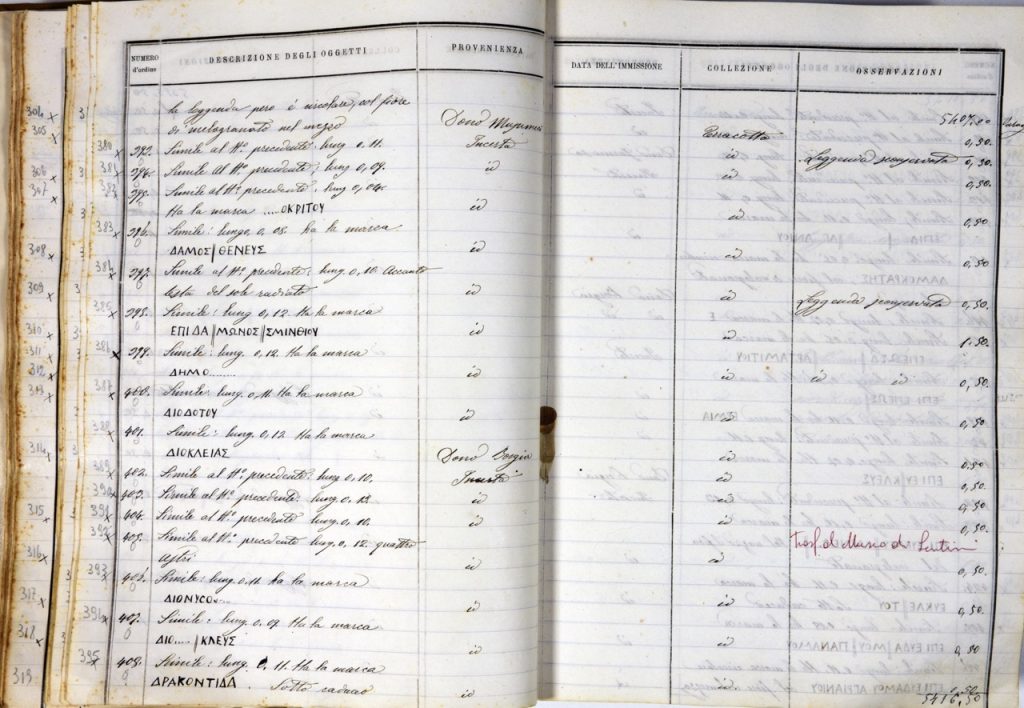 NUMERO d'ordine DESCRIZIONE DEGLI OGGETTI PROVENIENZA DATA DELL'IMMISSIONE COLLEZIONE OSSERVAZIONI
la leggenda però è circolare, col fiore 5407.00
di melogranato nel mezzo Dono Terracotta 0,50.
393. Simile al N.º precedente: lung. 0, 11. Incerta id Leggenda 0,50.
394. Simile al N.º precedente; lung. 0,09. id id 0,50.
395. Simile al N.º precedente; lung. 0,04.
Ha la marca .....ΟΚΡΙΤΟΥ id id 0,50
396. Simile: lungo, 0, 08. ha la marca
ΔΑΜΟΣ/ΘΕΝΕΥΣ id id 0,50
397. Simile al N.º precedente: lung. 0, 10. Accanto
testa del sole radiato id id Leggenda 0,50.
398. Simile: lung. 0, 12 Ha la marca
ΕΠΙ ΔΑ/ΜΩΝΟΣ/ΣΜΙΝΘΙΟΥ id id 1.50.
399. Simile: lung. 0, 12. Ha la marca
ΔΗΜΟ........ id id id id 0,50.
400. Simile: lung. 0, 11. Ha la marca
ΔΙΟΔΟΤΟΥ id id 0,50
401. Simile: lung. 0, 12 Ha la marca
ΔΙΟΚΛΕΙΑΣ Dono Borgia id 0.50
402. Simile al N.º precedente: lung. 0, 10. Incerta id 0,50.
403. Simile al N.º precedente: lung. 0, 13. id id 0,50
404. Simile al N.º precedente lung. 0, 10. id id 0,50.
405. Simile al N.º precedente lung. 0, 12. quattro Trasf. al Museo di Lentini
astri id id 0,50.
406. Simile: lung. 0. 11. ha la marca
ΔΙΟΝΥCO..... id id 0,50.
407. Simile: lung. 0, 09. Ha la marca
ΔΙΟ...../ΚΛΕΥΣ id id 0,50
408. Simile: lung. 0. 11. Ha la marca
ΔΡΑΚΟΝΤΙΔΑ Sotto caduceo id id 0,50
5416,50
304
305
306
307
308
309
310
311
312
313
314
315
316
317
318
319
380
383
384
385
386
387
388
389
390
391
392
393
394
395